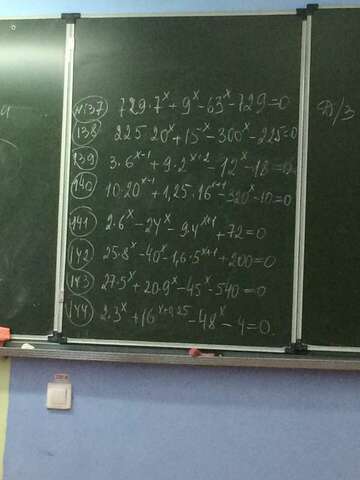 №137 729·7^x + 9^x - 63^x - 729 = 0
138 225·20^x + 15^x - 300^x - 225 = 0
139 3·6^{x-1} + 9·2^{x+2} - 12^x - 18 = 0
140 10·20^{x-1} + 1,25·16^{x+1} - 320^x - 10 = 0
141 2·6^x - 24^x - 9·4^{x+1} + 72 = 0
142 25·8^x - 40^x - 1,6·5^{x+1} + 200 = 0
143 27·5^x + 20·9^x - 45^x - 540 = 0
144 2·3^x + 16^{x+0,25} - 48^x - 4 = 0
Д/З